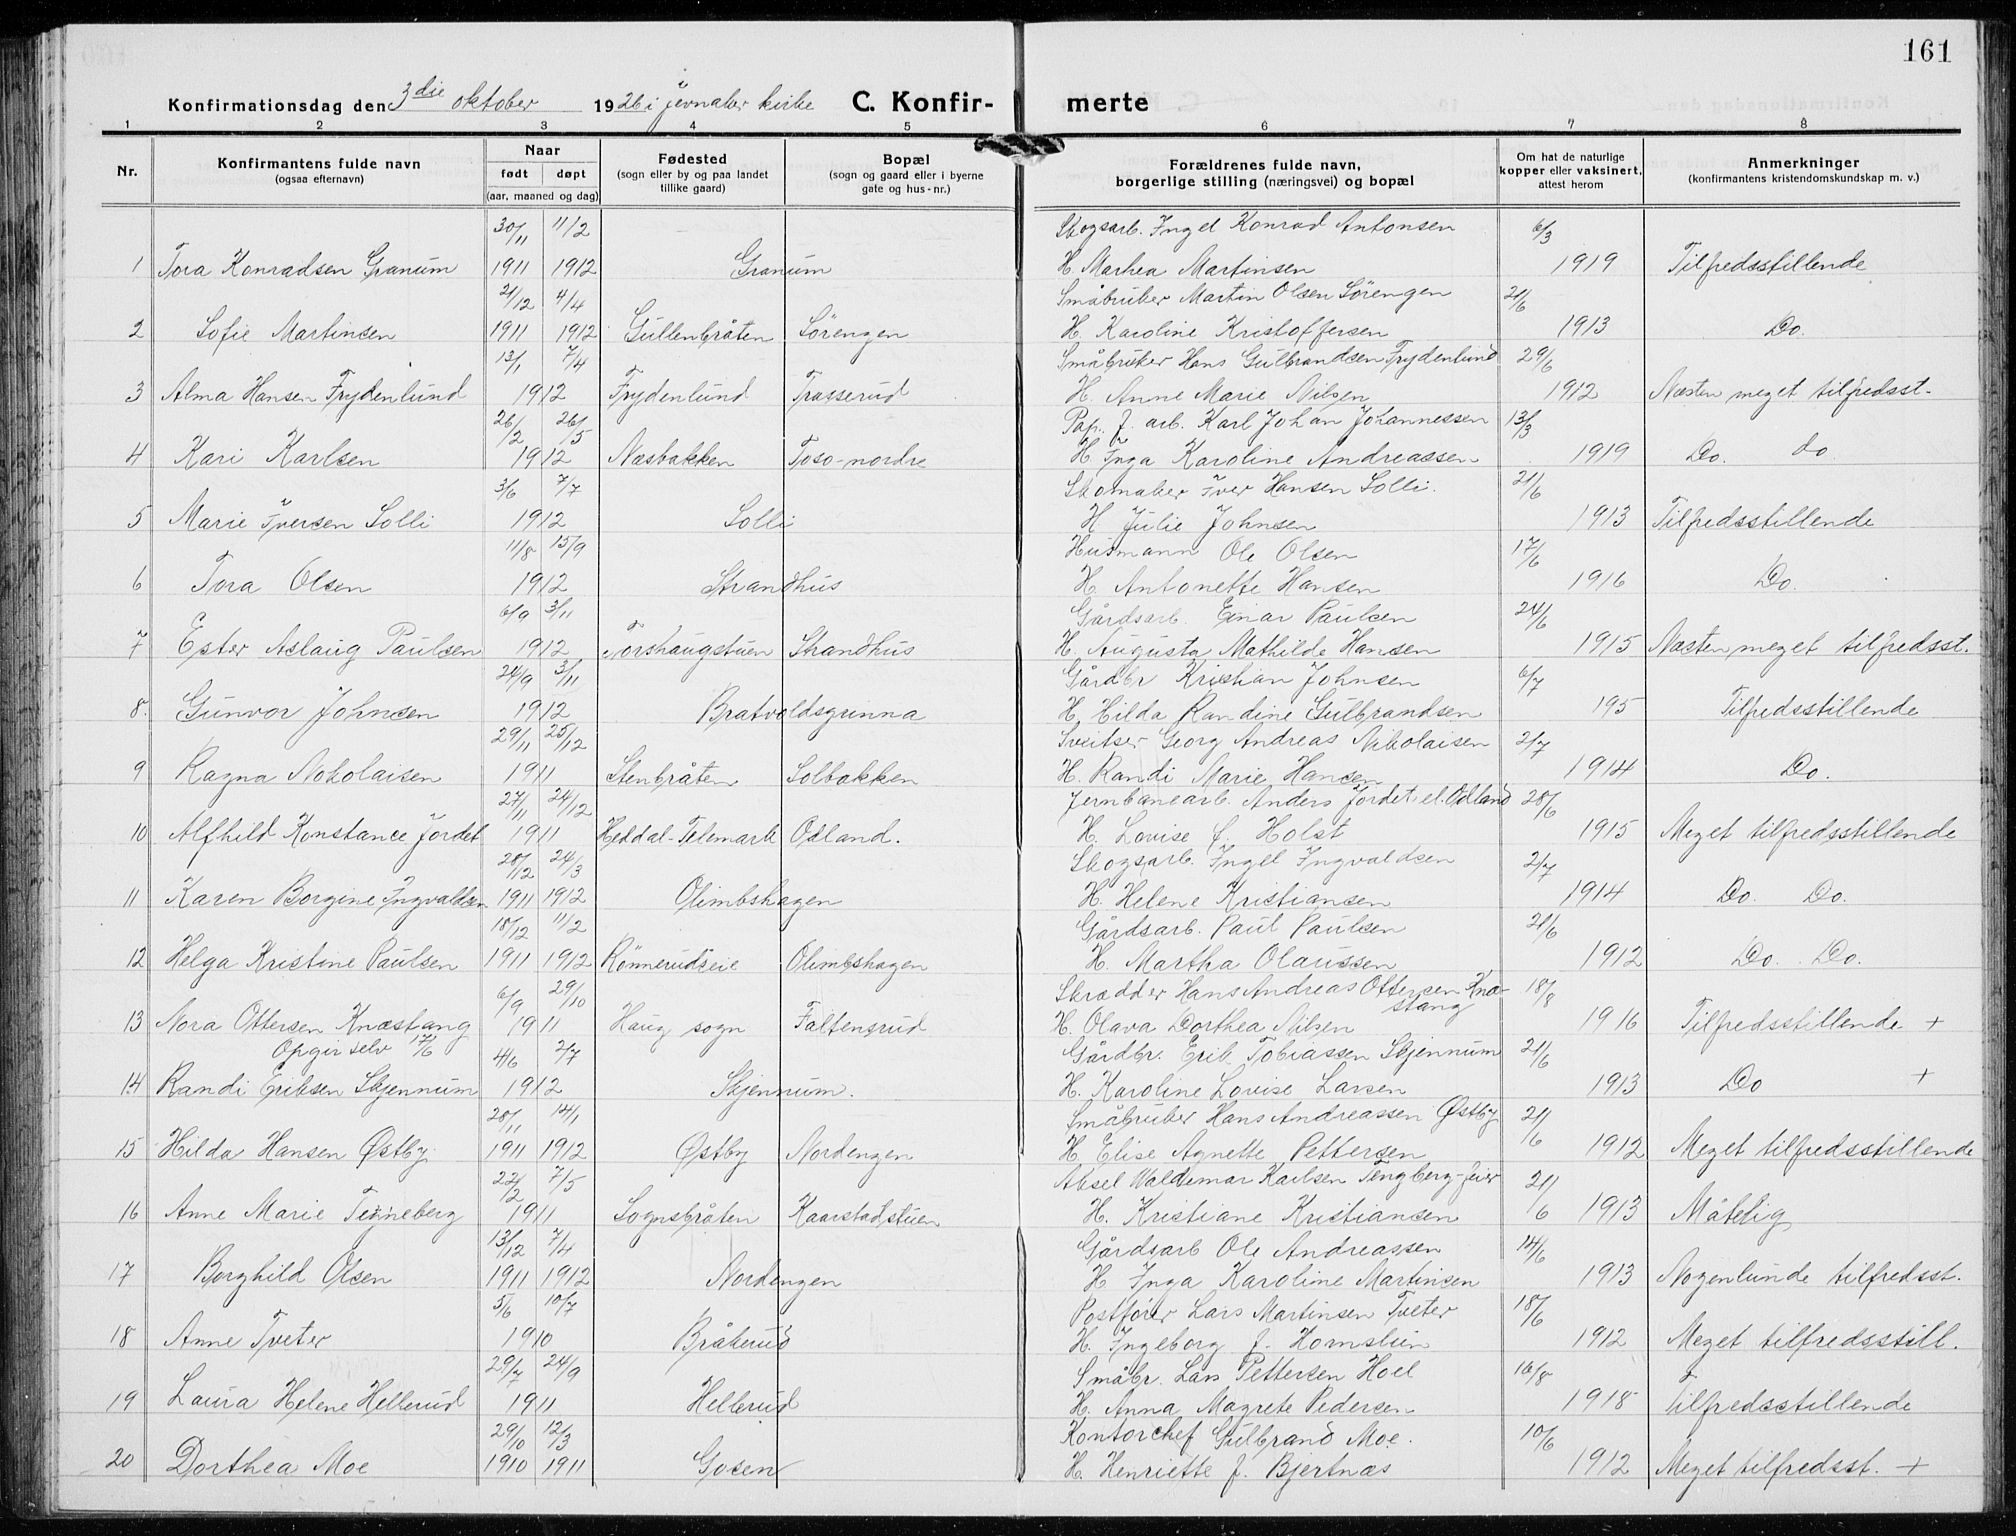 161
Konfirmationsdag den 3die oktober 1926 i Jevnaker kirke C. Konfir-merte
1 2 3 4 5 6 7 8
Nr. Konfirmantens fulde navn (ogsaa efternavn) Naar født døpt (aar, maaned og dag) Fødested (sogn eller by og paa landet tillike gaard) Bopæl (sogn og gaard eller i byerne gate og hus-nr.) Forældrenes fulde navn, borgerlige stilling (næringsvei) og bopæl Om hat de naturlige kopper eller vaksinert, attest herom Anmerkninger (konfirmantens kristendomskundskap m. v.)
30/11 11/2 Skogsarb. Ingel Konrad Antonsen 6/3
1 Tora Konradsen Granum 1911 1912 Granum H. Marhea Martinsen 1919 Tilfredsstillende
21/12 4/4 Småbruker Martin Olsen Sörengen 21/6
2 Sofie Martinsen 1911 1912 Gullenbråten Sörengen H. Karoline Kristoffersen 1913 Do.
13/1 7/4 Småbruker Hans Gulbrandsen Frydenlund 29/6
3 Alma Hansen Frydenlund 1912 Frydenlund Trosserud H. Anne Marie Nilsen 1912 Næsten meget tilfredsst.
26/2 26/5 Pap. f. arb. Karl Johan Johannessen 13/3
4 Kari Karlsen 1912 Næsbakken Toso-nordre H. Inga Karoline Andreassen 1919 Do. do.
3/6 7/7 Skomaker Iver Hansen Solli. 21/6
5 Marie Iversen Solli 1912 Solli H Julie Johnsen 1913 Tilfredsstillende
11/8 15/9 Husmann Ole Olsen 17/6
6 Tora Olsen 1912 Strandhus H. Antonette Hansen 1916 Do.
6/9 3/11 Gårdsarb. Einar Paulsen 24/6
7 Ester Aslaug Paulsen 1912 Torshaugstuen Strandhus H. Augusta Mathilde Hansen 1915 Næsten meget tilfredsst.
24/9 3/11 Gårdbr Kristian Johnsen 6/7
8. Gunvor Johnsen 1912 Bratvoldsgrinna H. Hilda Randine Gulbrandsen 195 Tilfredsstillende
29/11 25/12 Sveitser Georg Andreas Nikolaisen 2/7
9 Ragna Nokolaisen 1911 Stenbråten Solbakken H. Randi Marie Hansen 1914 Do.
27/11 24/12 Jernbanearb. Anders Jordet el. Odland 28/6
10 Alfhild Konstance Jordet 1911 Heddal-Telemark Odland. H. Lovise f. Holst 1915 Meget tilfredsstillende
28/12 24/3 Skogsarb. Ingel Ingvaldsen 2/7
11 Karen Borgine Ingvaldsen 1911 1912 Olimbshagen H. Helene Kristiansen 1914 Do. Do.
18/12 11/2 Gårdsarb. Paul Paulsen 21/6
12 Helga Kristine Paulsen 1911 1912 Rönnerudseie Olimbshagen H. Martha Olaussen 1912 Do. Do.
6/9 29/10 Skrædder Hans Andreas Ottersen Knæ-stang 18/8
13 Nora Ottersen Knæstang 1911 Haug sogn Faltensrud H. Olava Dorthea Nilsen 1916 Tilfredsstillende +
Opgir selv 17/6 4/6 2/7 Gårdbr. Erik Tobiassen Skjennum 21/6
14 Randi Eriksen Skjennum 1912 Skjennum. H. Karoline Lovise Larsen 1913 Do +
28/11 14/1 Småbruker Hans Andreassen Østby 21/6
15 Hilda Hansen Østby 1911 1912 Østby Nordengen H. Elise Agnette Pettersen 1912 Meget tilfredsstillende
22/2 7/5 Aksel Waldemar Karlsen Tengberg-feier 21/6
16 Anne Marie Tegneberg 1911 Sognsbråten Kaarstadstuen H. Kristiane Kristiansen 1913 Måtelig
13/12 7/4 Gårdsarb Ole Andreassen 14/6
17 Borghild Olsen 1911 1912 Nordengen H Inga Karoline Martinsen 1913 Nogenlunde tilfredsst.
5/6 10/7 Postfører Lars Martinsen Tveter 18/6
18 Anne Tveter 1910 Bråkerud H. Ingeborg f. Homslien 1912 Meget tilfredsstill.
29/7 24/9 Småbr. Lars Pettersen Hoel 16/8
19 Laura Helene Hellerud 1911 Hellerud H. Anna Magrete Pedersen 1918 Tilfredsstillende
29/10 12/3 Kontorchef Gulbrand Moe. 10/6
20 Dorthea Moe 1910 1911 Gosen H. Henriette f. Bjertnæs 1912 Meget tilfredsst. +